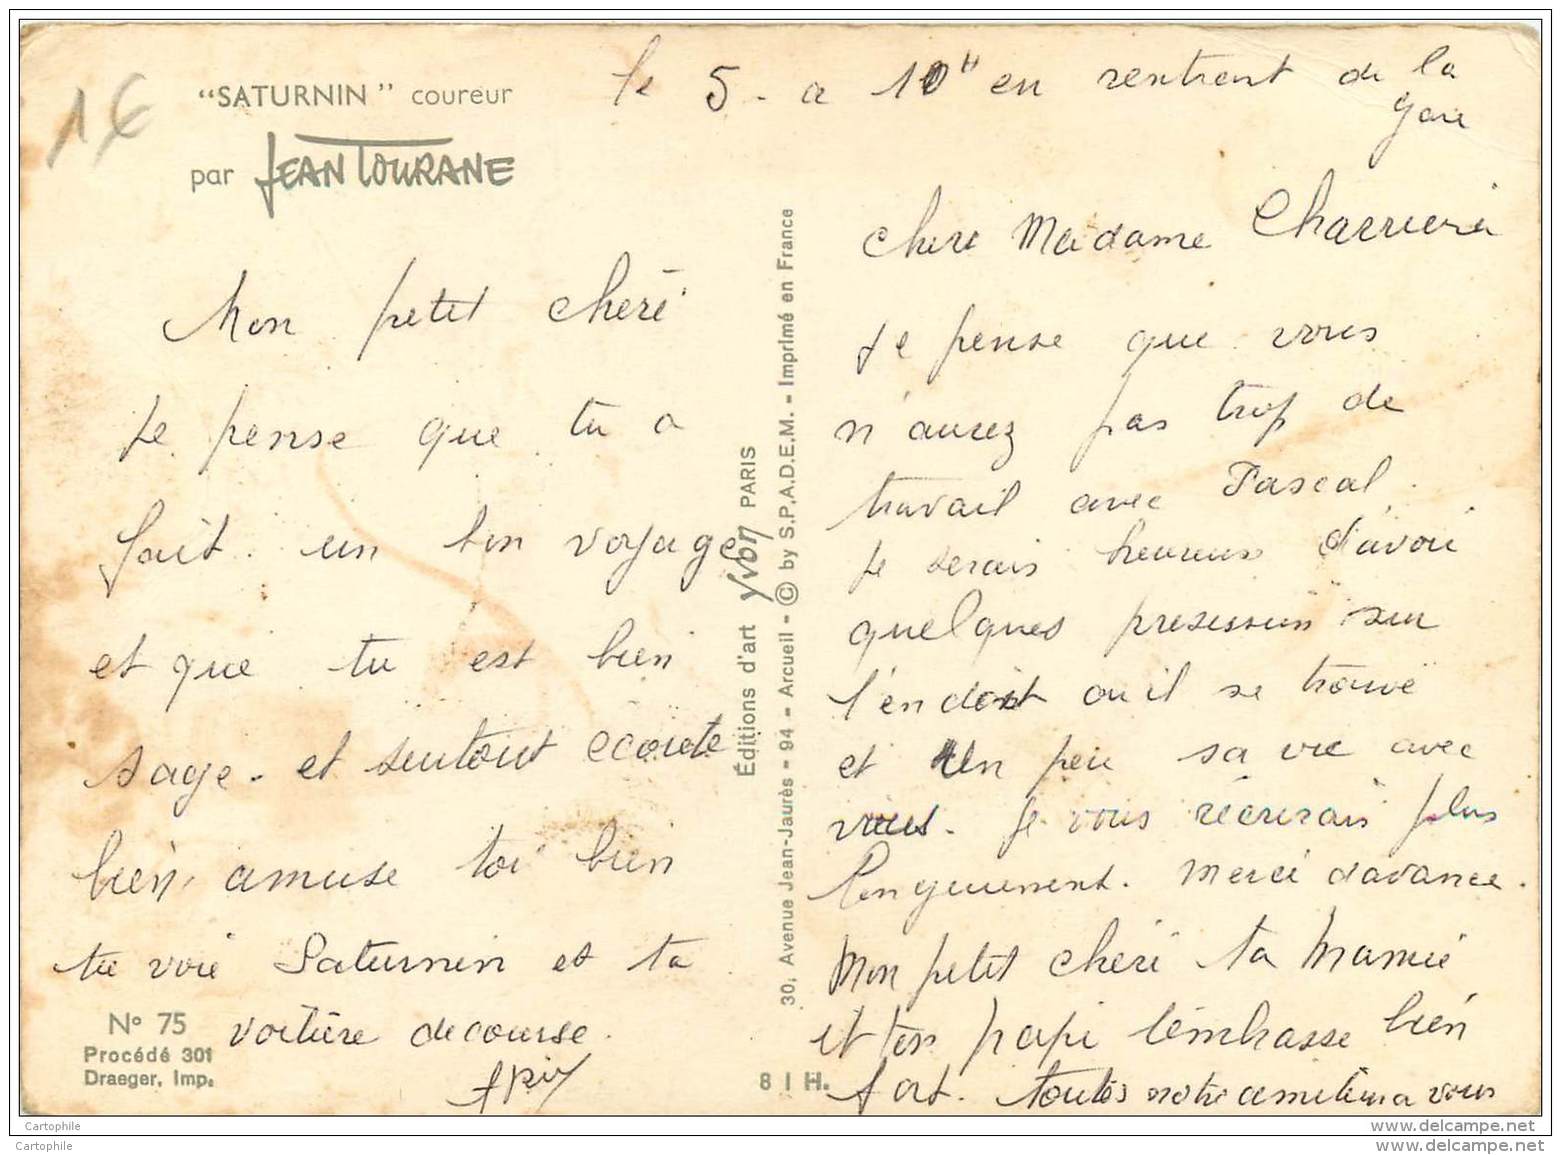 1€
"SATURNIN" coureur
par JEAN TOURANE
le 5 - a 10" en rentrent de la
gare
Mon petit chéri
Je pense que tu a
fait un bon voyage
et que tu est bien
sage. et surtout écoute
bien, amuse toi bien
tu voie Saturnin et ta
voitière de course.
N° 75
Procédé 301
Draeger, Imp.
Éditions d'art Yvon PARIS
30, Avenue Jean-Jaurès - 94 - Arcueil - © by S.P.A.D.E.M. - Imprimé en France
8 I H.
Chere Madame Charriere
Je pense que vous
n'aurez pas trop de
travail avec Pascal.
Je serais heureus d'avoir
quelques sur
l'endoit ou il se trouve
et un peu sa vie avec
vous. Je vous récrirais plus
longuement. Merci davance.
Mon petit chéri ta Mamie
et ton papi t'embrasse bien
fort. toutes notre a vous
www.delcampe.net
Cartophile
www.delcampe.net
Cartophile